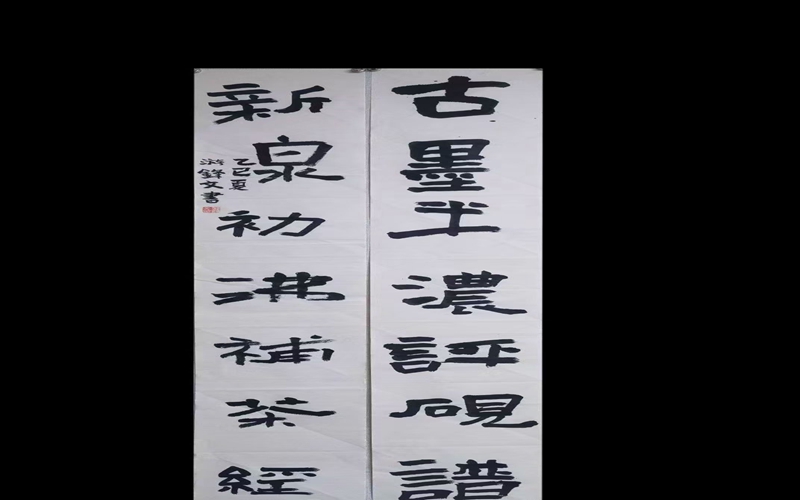 古墨半濃評硯譜
新泉初沸補茶經
乙巳夏
鋒文書